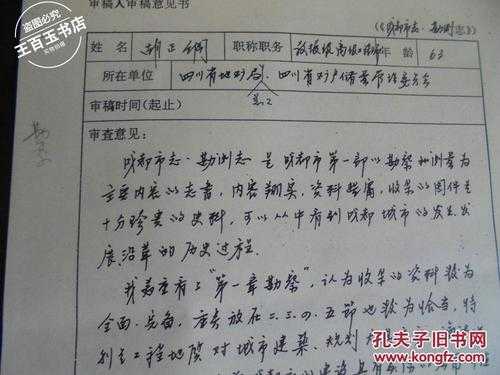 审稿人审稿意见书
(《成都市志·勘测志》)
姓名 胡正纲 职称职务 教授级高级工程师 年龄 63
所在单位 四川省地矿局、四川省矿产储量委员会
审稿时间(起止)
审查意见:
成都市志·勘测志是成都市第一部以勘察和测量为
主要内容的志书,内容翔实,资料丰富,收集的图件是
十分珍贵的史料,可以从中看到成都城市的发生发
展沿革的历史过程。
我着重看了“第一章勘察”,认为收集的资料较为
全面、完备,重点放在二.三.四.五节也较为恰当,特
别是工程地质对城市建筑、规划
王百玉书店
KONGFZ.COM
孔夫子旧书网
www.kongfz.com